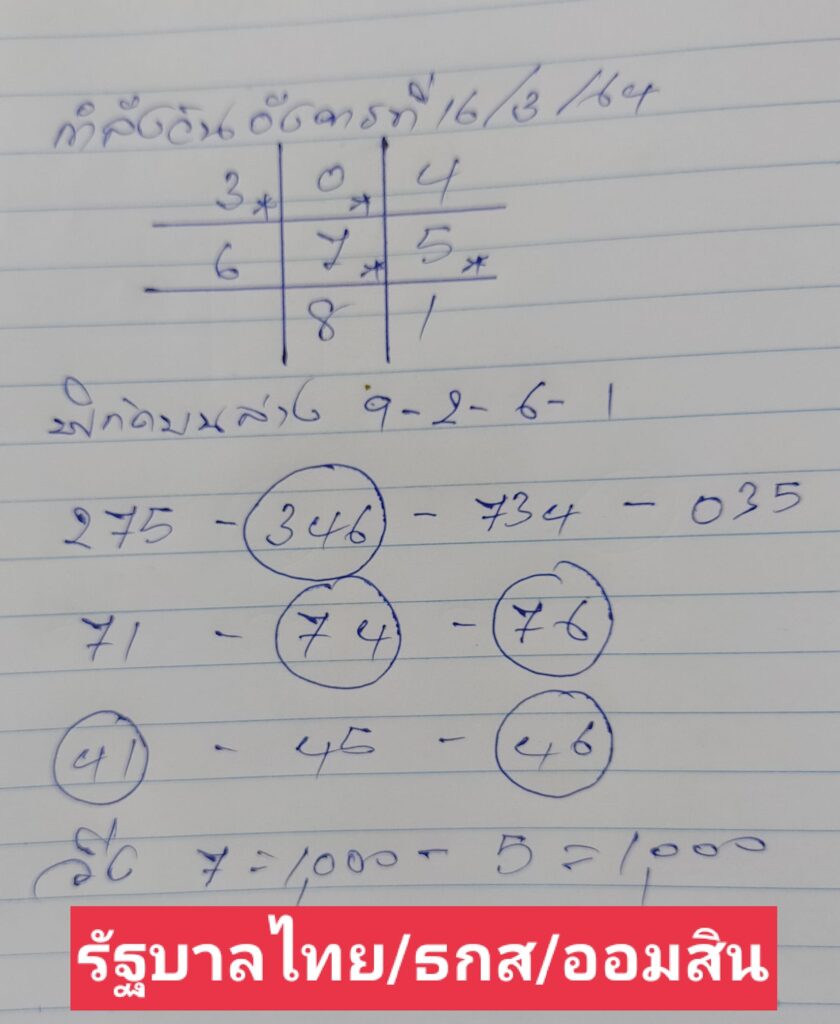 กำลังวัน อังคารที่ 16/3/64
3* 0* 4
6 7* 5*
8 1
พิกัดบนล่าง 9-2-6-1
275 - 346 - 734 - 035
71 - 74 - 76
41 - 45 - 46
วิ่ง 7=1,000 - 5=1,000
รัฐบาลไทย/ธกส/ออมสิน